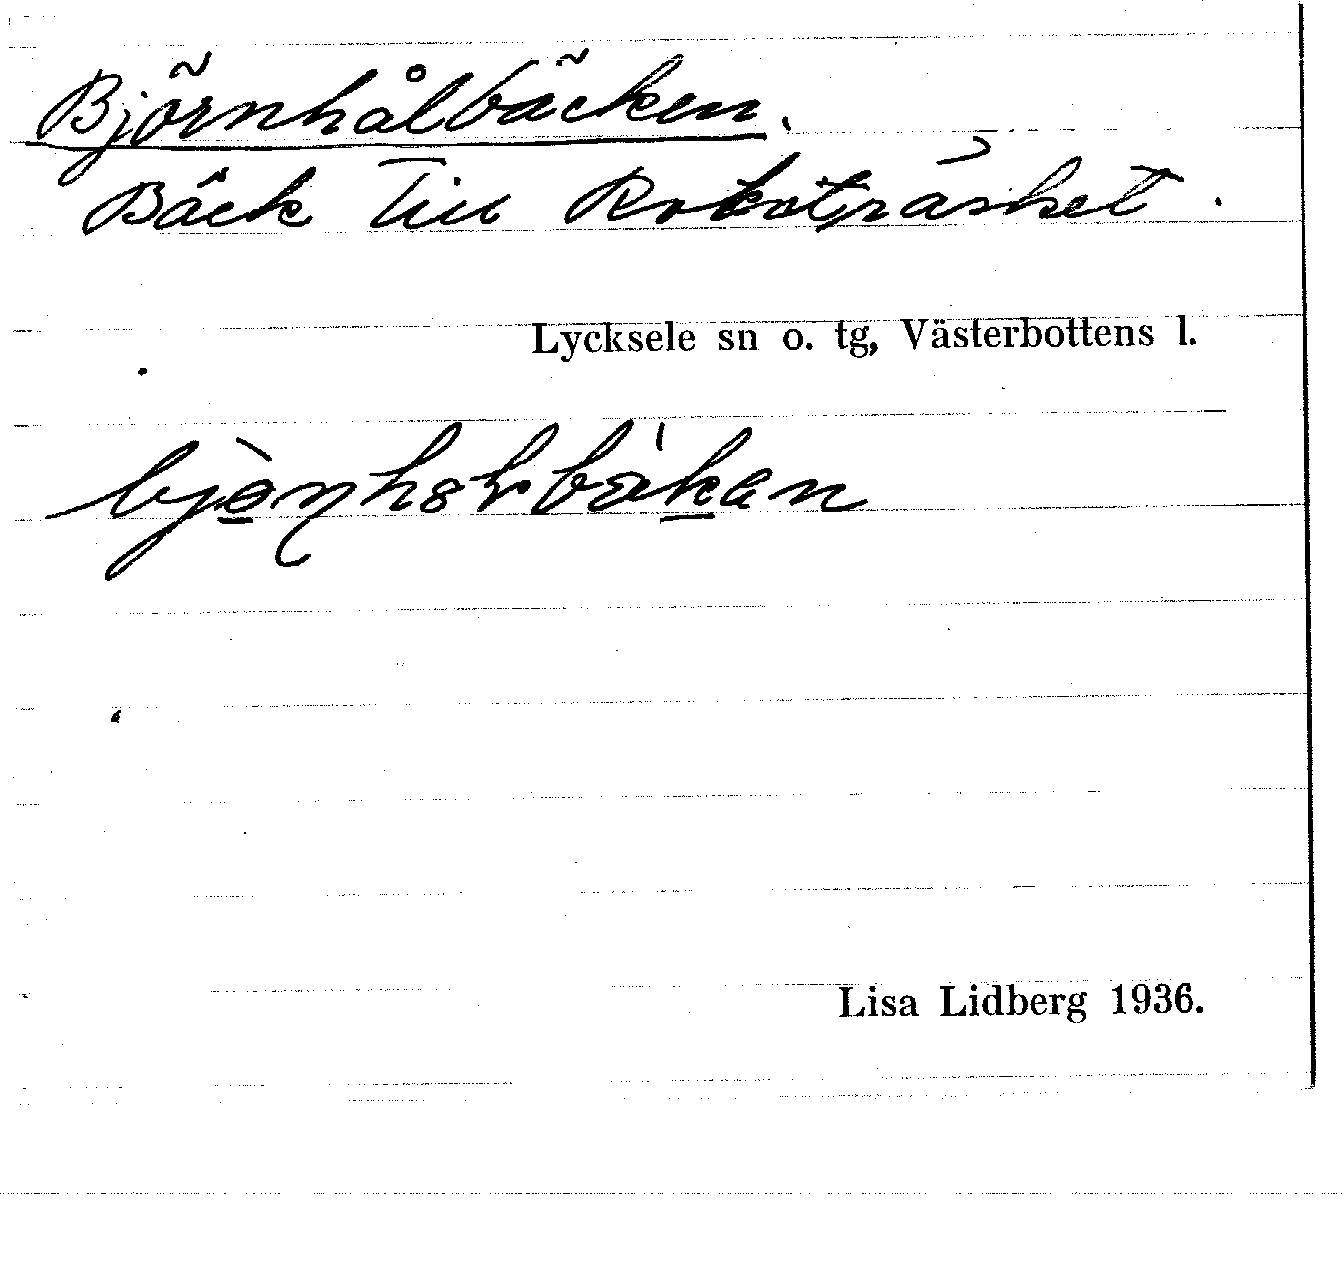 Björnhålbäcken.
Bäck till Rokoträsket.
Lycksele sn o. tg, Västerbottens l.
Lisa Lidberg 1936.